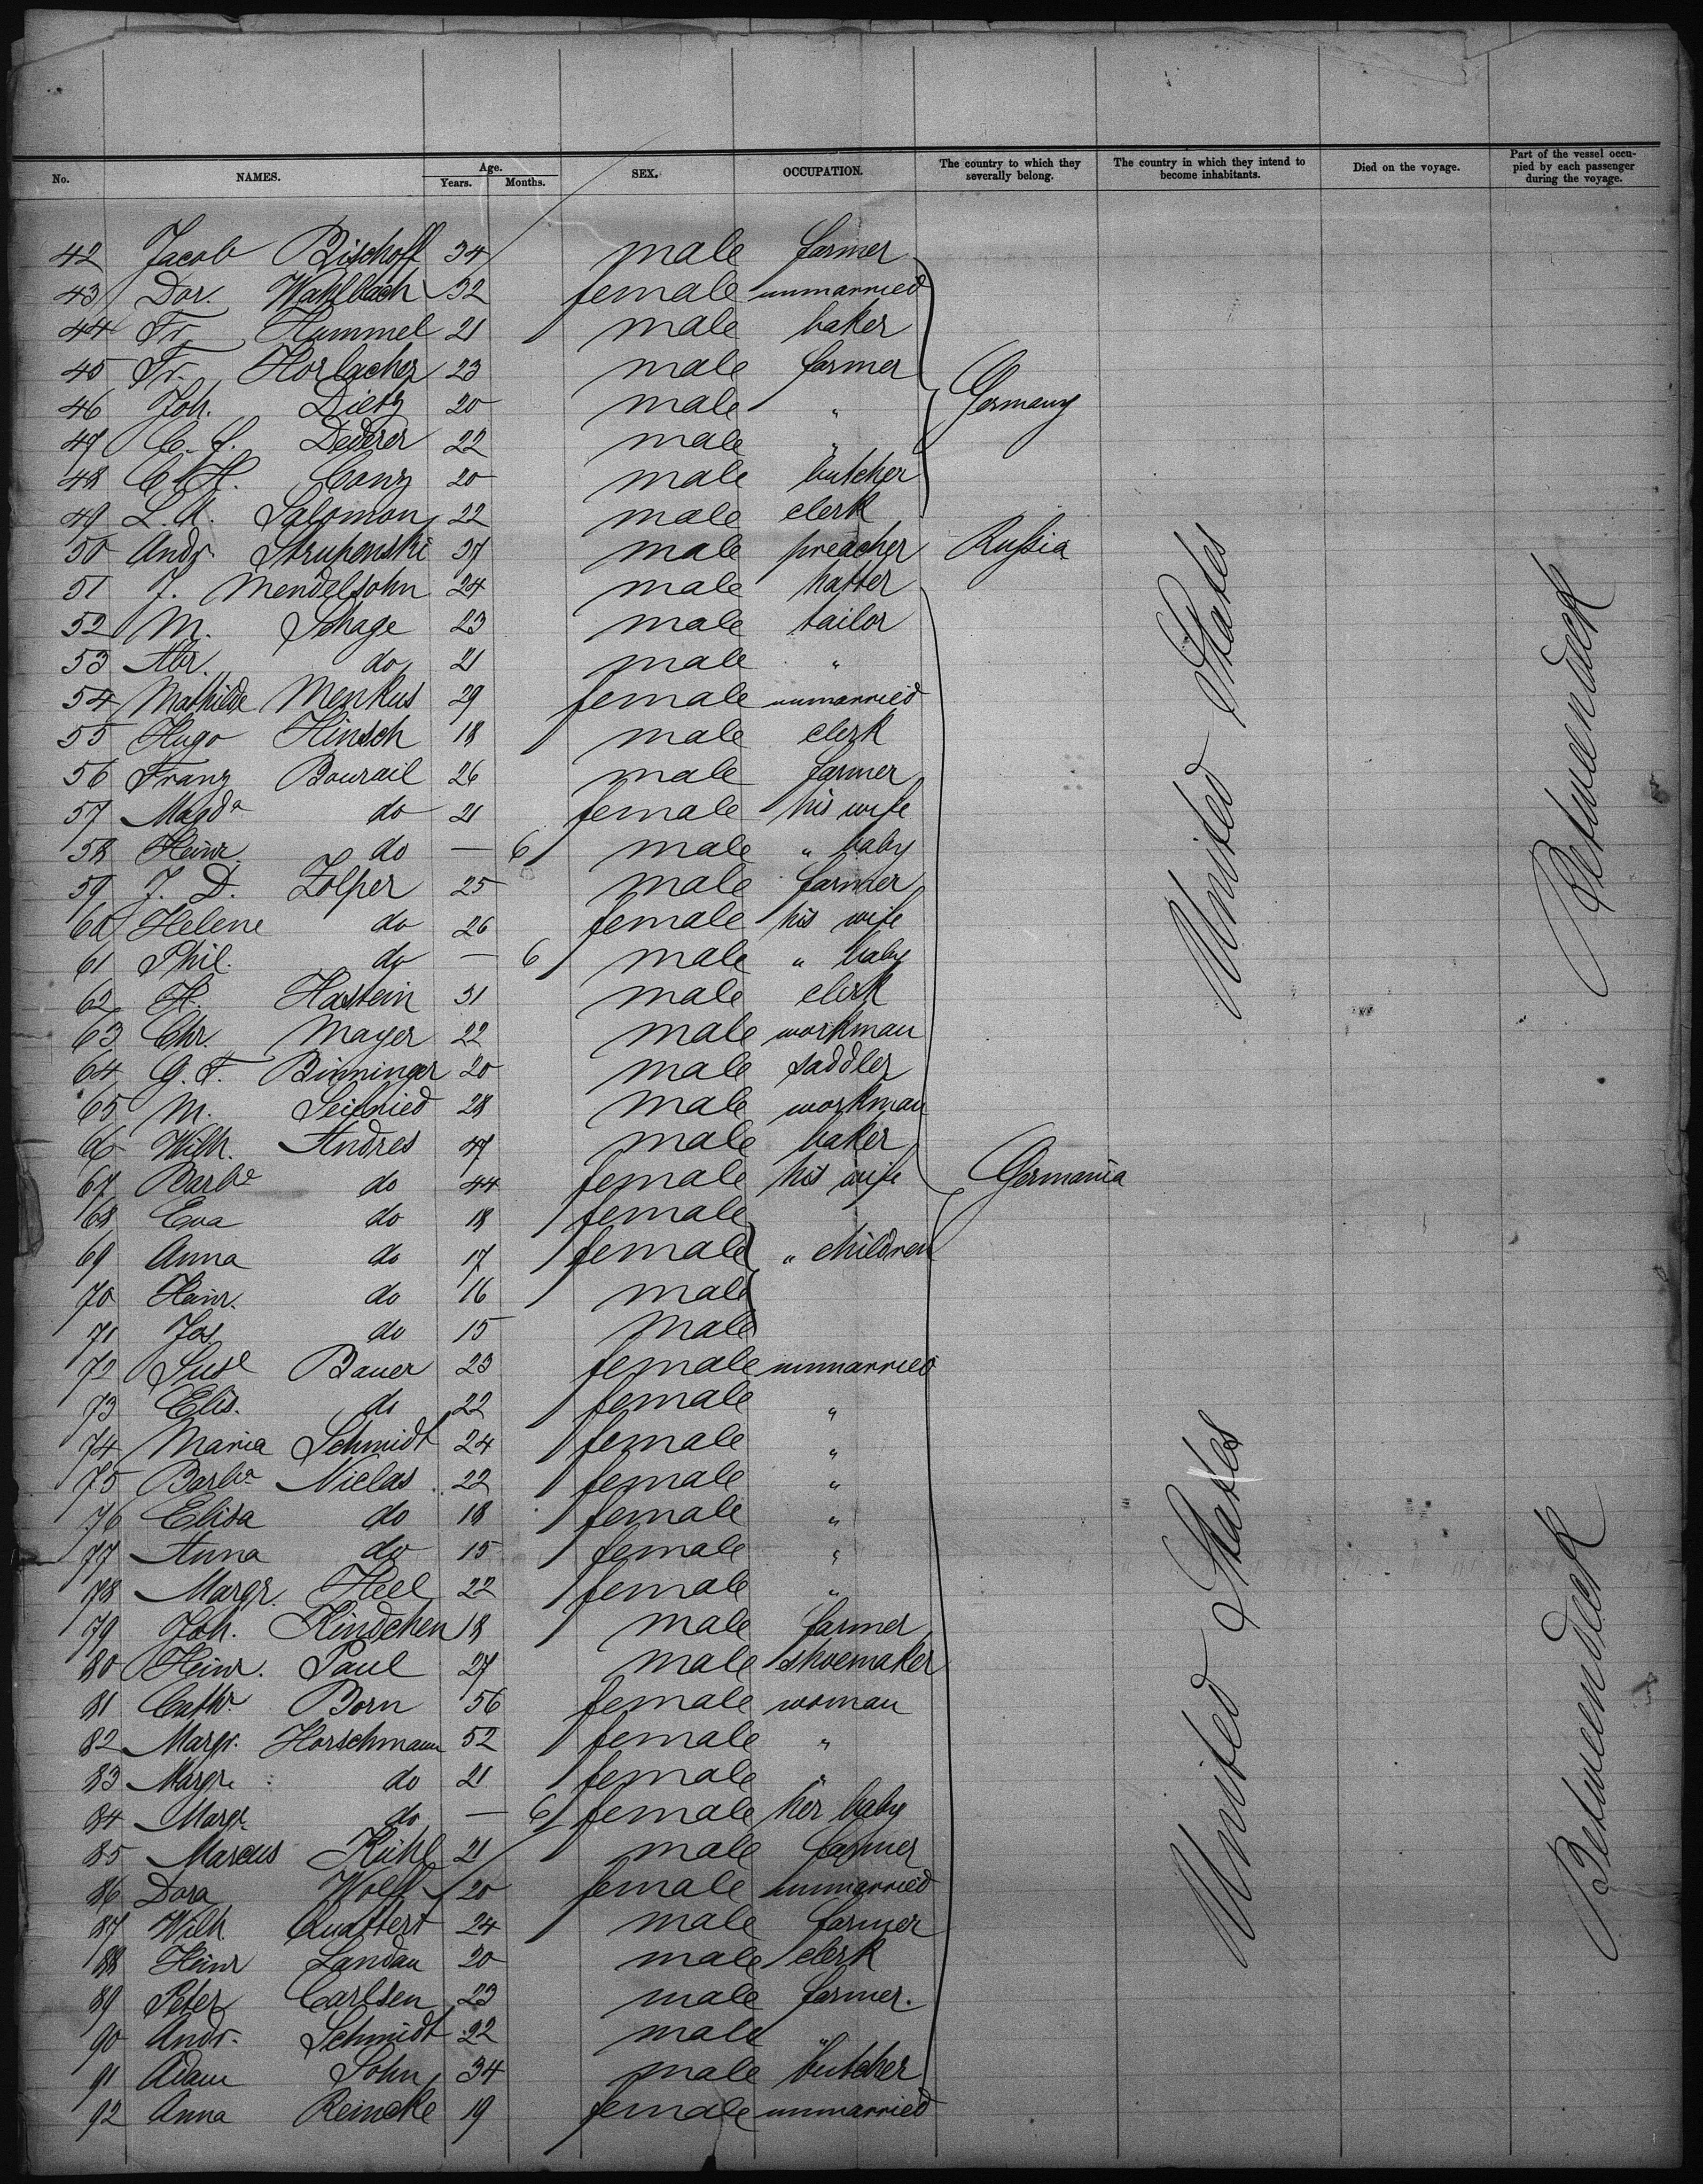 No. NAMES. Age. Years. Months. SEX. OCCUPATION. The country to which they severally belong. The country in which they intend to become inhabitants. Died on the voyage. Part of the vessel occupied by each passenger during the voyage.
42 Jacob Bischoff 34 male farmer
43 Dor. Wahlbach 32 female unmarried
44 Fr. Hummel 21 male baker
45 Fr. Horlacher 23 male farmer
46 Joh. Dietz 20 male " Germany
47 C. F. Dederer 22 male "
48 C. H. Conz 20 male butcher
49 L. A. Salomon 22 male clerk
50 Andr. Strupenski 37 male preacher Russia
51 J. Mendelsohn 24 male hatter
52 M. Schage 23 male tailor
53 Abr. do 21 male "
54 Mathilde Menkus 29 female unmarried
55 Hugo Hinsch 18 male clerk
56 Franz Bourail 26 male farmer
57 Magda do 21 female his wife
58 Heinr. do — 6 male " baby
59 J. D. Zolper 25 male farmer
60 Helene do 26 female his wife
61 Phil. do — 6 male " baby
62 H. Hastein 31 male clerk
63 Chr. Mayer 22 male workman
64 G. F. Binninger 20 male saddler
65 M. Seifried 28 male workman
66 Wilh. Andres 47 male baker
67 Barba do 44 female his wife Germania
68 Eva do 18 female
69 Anna do 17 female " children
70 Heinr. do 16 male
71 Jos. do 15 male
72 Suse Bauer 23 female unmarried
73 Elis. do 22 female "
74 Maria Schmidt 24 female "
75 Barba Niclas 22 female "
76 Elisa do 18 female "
77 Anna do 15 female "
78 Margr. Heel 22 female "
79 Joh. Kindchen 18 male farmer
80 Heinr. Paul 27 male shoemaker
81 Cathr. Born 56 female woman
82 Margr. Horschmann 52 female "
83 Margr. do 21 female "
84 Margr. do — 6 female her baby
85 Marcus Kühl 21 male farmer
86 Dora Wolff 20 female unmarried
87 Wilh. Quattert 24 male farmer
88 Heinr Landau 20 male clerk
89 Peter Carlsen 23 male farmer.
90 Andr. Schmidt 22 male "
91 Adam Sohn 34 male butcher
92 Anna Reincke 19 female unmarried
United States
Betweendeck
United States
Betweendeck